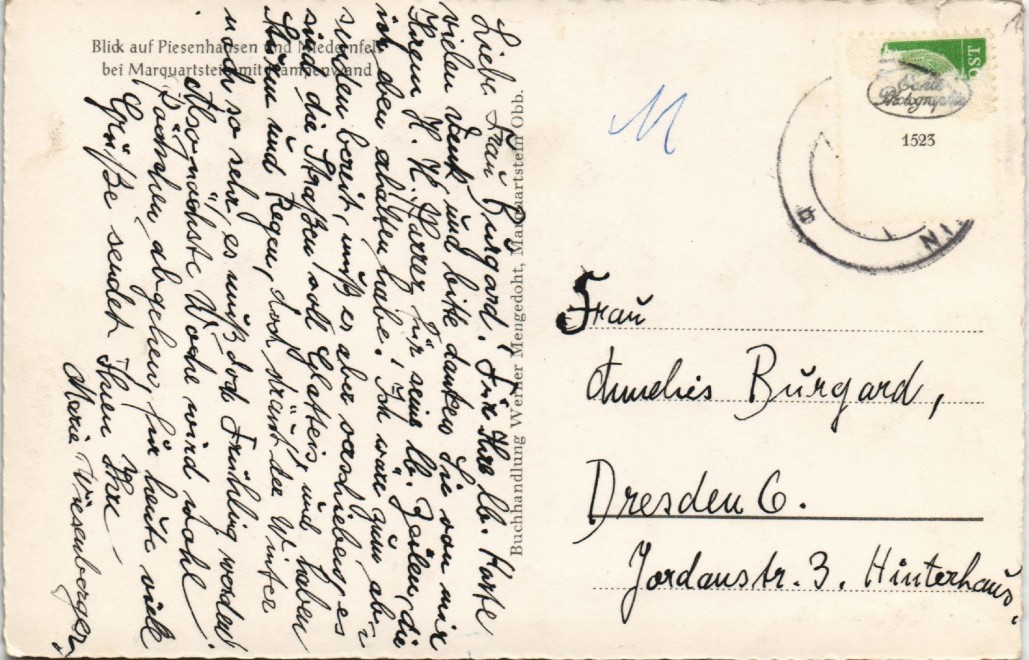 Blick auf Piesenhausen und Niedernfels
bei Marquartstein mit Kampenwand
Liebe Frau Burgard! Für Ihre lb. Karte
vielen Dank und bitte danken Sie von mir
Ihrem H. H. für seine lb. Zeilen, die
ich eben erhalten habe! Ich wäre zum ab-
senden bereit, muß es aber verschieben, es
sind die Straßen voll Glatteis und haben
Sturm und Regen, doch sträubt der Winter
noch so sehr, es muß doch Frühling werden.
Also nächste Woche wird wohl
Päckchen abgehen, für heute viele
Grüße sendet Ihnen Ihre
Marie Wiesenberger
Buchhandlung Werner Mengedoht, Marquartstein Obb.
M
OST
Echte
Photographie
1523
Frau
Annelies Burgard,
Dresden 6.
Jordanstr. 3. Hinterhaus.